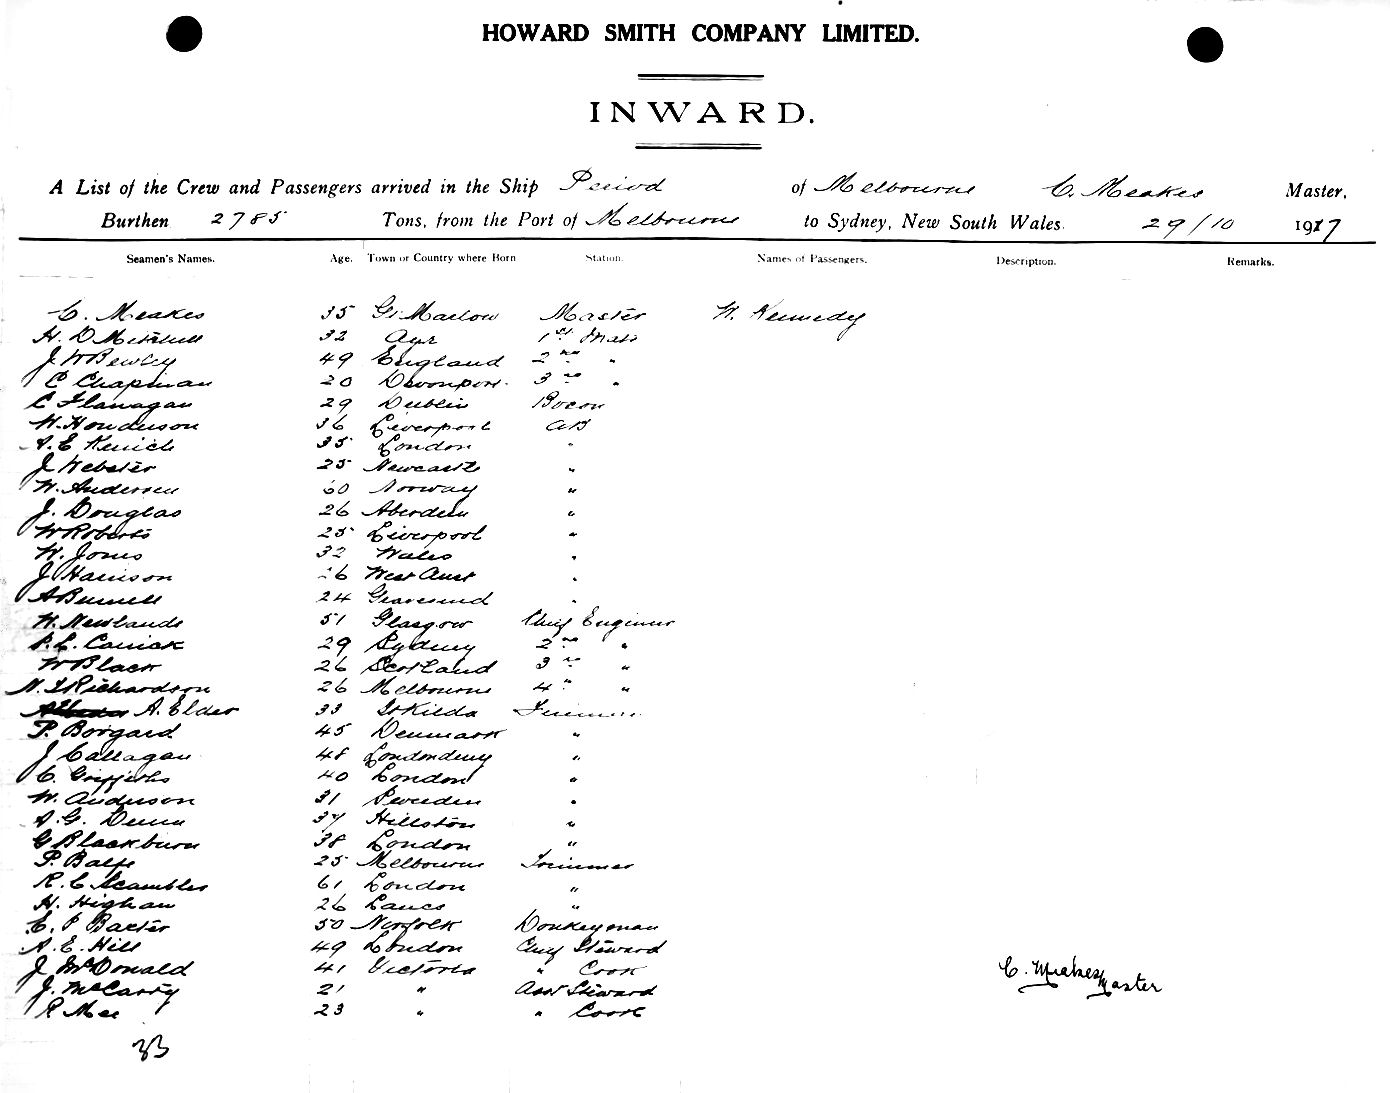 HOWARD SMITH COMPANY LIMITED.
INWARD.
A List of the Crew and Passengers arrived in the Ship Period of Melbourne C. Meakes Master,
Burthen 2785 Tons, from the Port of Melbourne to Sydney, New South Wales 29/10 1917
Seamen's Names. Age. Town or Country where Born Station. Names of Passengers. Description. Remarks.
C. Meakes 35 Gt Marlow Master W. Kennedy
H. D Mitchell 32 Ayr 1st Mate
J W Bewley 49 England 2nd "
C Chapman 20 Devonport 3rd "
C Flanagan 29 Dublin Bosun
W. Henderson 36 Liverpool AB
A. E 35 London "
J Webster 25 Newcastle "
W. Andersen 60 Norway "
J. Douglas 26 Aberdeen "
W Roberts 25 Liverpool "
W. Jones 32 Wales "
J Harrison 26 West Aust "
A Burnell 24 Gravesend "
W. Newlands 51 Glasgow Chief Engineer
P. L. Carrick 29 Sydney 2nd "
W Black 26 Scotland 3rd "
N. Richardson 26 Melbourne 4th "
A. Elder 33 St Kilda Fireman
P. Borgard 45 Denmark "
J Callagan 48 Londonderry "
C. Griffiths 40 London "
W. Anderson 31 Sweden "
A. G. Dunn 37 Hillston "
G Blackburn 38 London "
P. Balfe 25 Melbourne Trimmer
R. C Scambler 61 London "
H. Higham 26 Lancs "
E. P Baxter 50 Norfolk Donkeyman
A. E. Hill 49 London Chief Steward
J McDonald 41 Victoria " Cook
J. McCarry 21 " Asst Steward
R Mee 23 " " Cook
C. Meakes Master
33